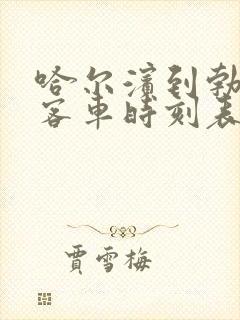 哈尔滨到勃
客车时刻表
贾雪梅